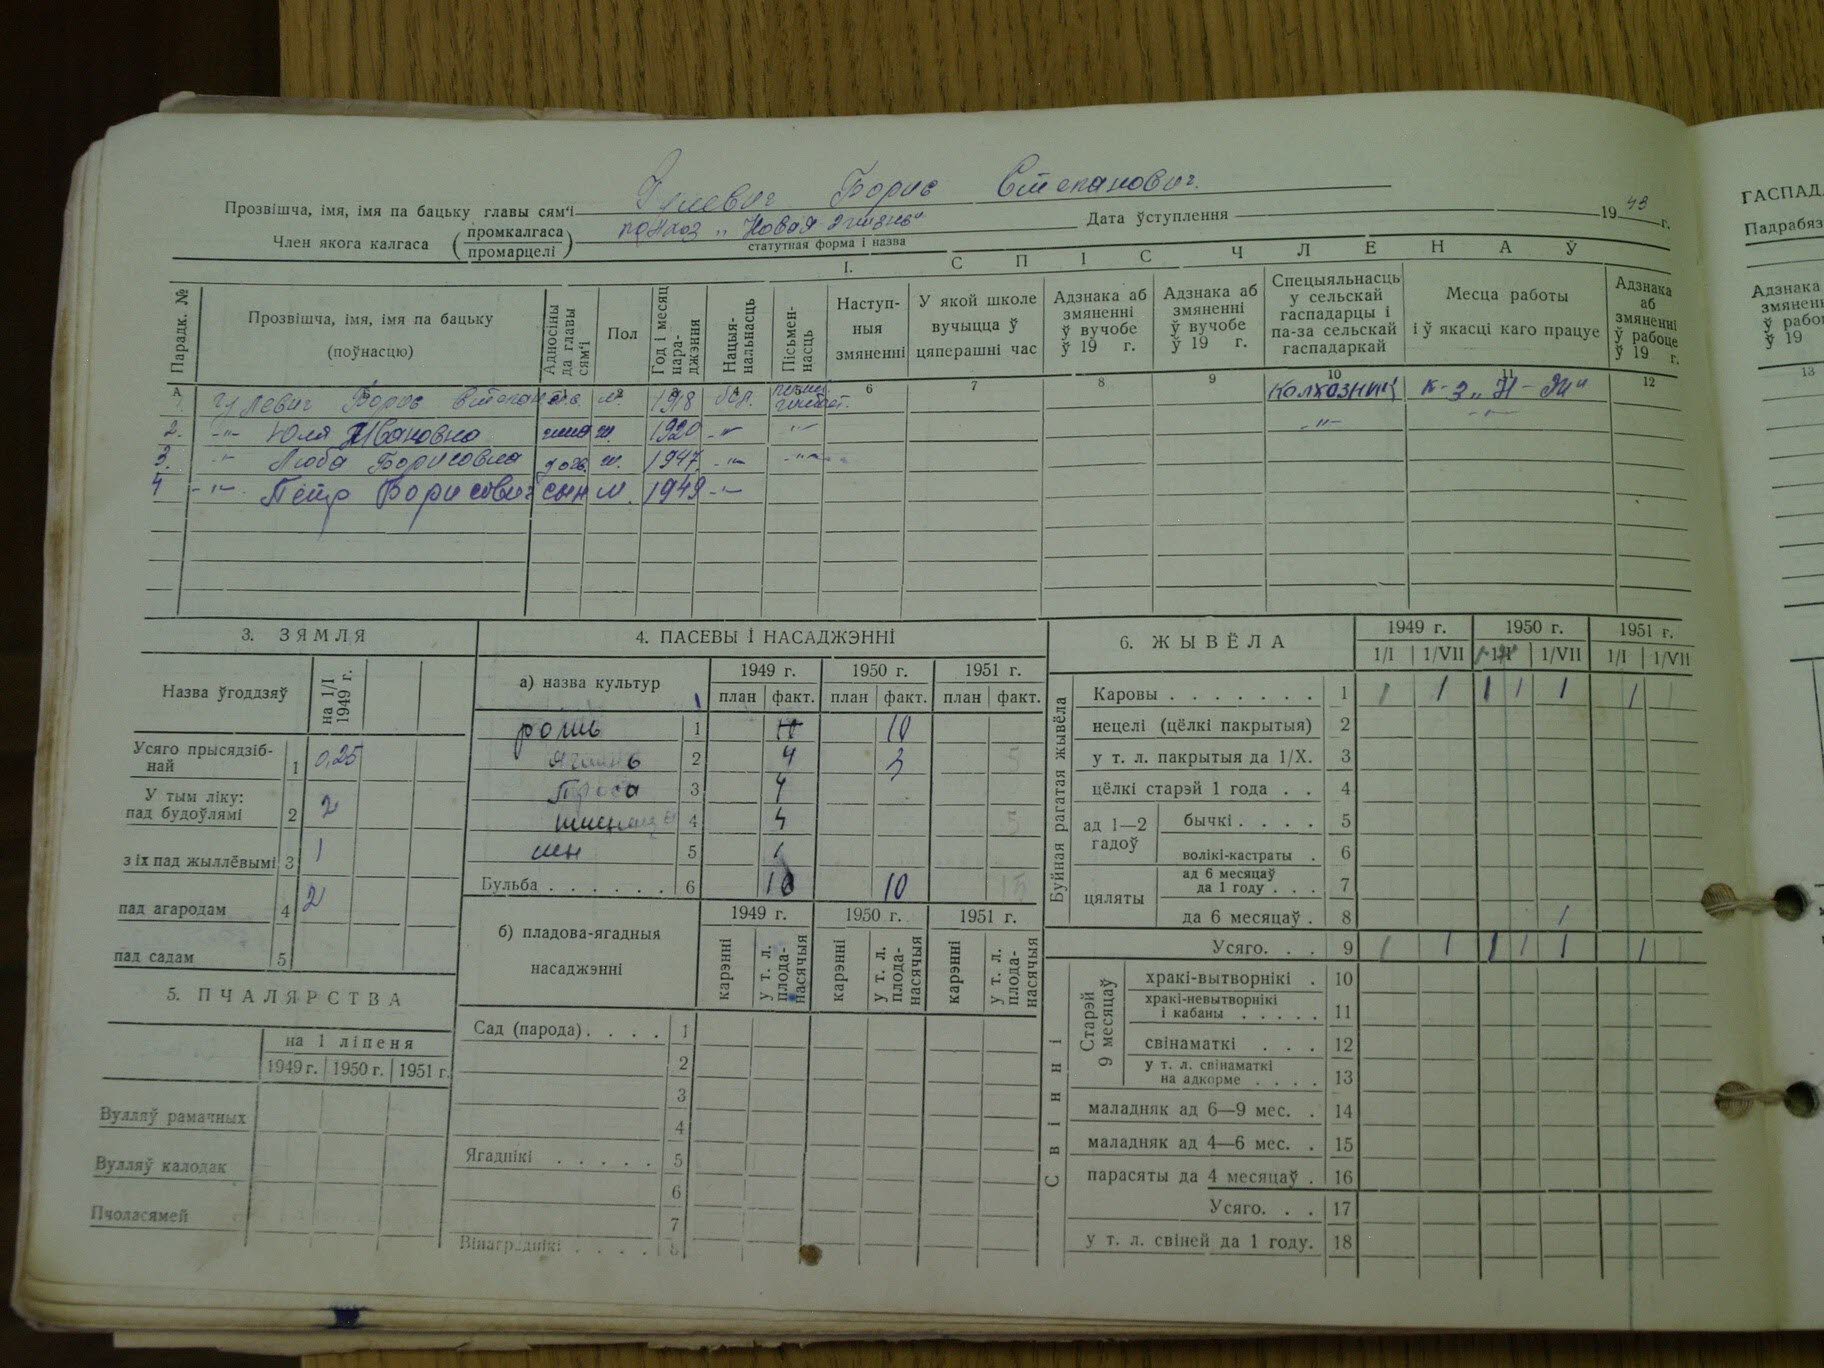 Прозвішча, імя, імя па бацьку главы сям'і Гулевич Борис Степанович.
Член якога калгаса (промкалгаса промарцелі) колхоз „Новая жизнь"
статутная форма і назва
Дата ўступлення 19 г.
ГАСПАД
Падрабяз
I. СПІС ЧЛЕНАЎ
Парадк. №
Прозвішча, імя, імя па бацьку (поўнасцю)
Адносіны да главы сям'і
Пол
Год і месяц нараджэння
Нацыянальнасць
Пісьменнасць
Наступныя змяненні
У якой школе вучыцца ў цяперашні час
Адзнака аб змяненні ў вучобе ў 19 г.
Адзнака аб змяненні ў вучобе ў 19 г.
Спецыяльнасць у сельскай гаспадарцы і па-за сельскай гаспадаркай
Месца работы і ў якасці каго працуе
Адзнака аб змяненні ў рабоце ў 19 г.
Адзнака
змяненні
ў рабо
ў 19
А 1 2 3 4 5 6 7 8 9 10 11 12 13
Гулевич Борис м. 1918 бел. Колхозник
2. -"- Юля Ивановна жена ж. 1920 -"- -"- -"- -"-
3. -"- Люба Борисовна дочь ж. 1947 -"- -"-
4 -"- Пётр Борисович сын м. 1949 -"-
3. ЗЯМЛЯ
Назва ўгоддзяў
на 1/I 1949 г.
Усяго прысядзібнай 1 0,25
У тым ліку: пад будоўлямі 2 2
з іх пад жыллёвымі 3 1
пад агародам 4 2
пад садам 5
5. ПЧАЛЯРСТВА
на 1 ліпеня
1949 г. 1950 г. 1951 г.
Вулляў рамачных
Вулляў калодак
Пчоласямей
4. ПАСЕВЫ І НАСАДЖЭННІ
а) назва культур
1949 г. 1950 г. 1951 г.
план факт. план факт. план факт.
рожь 1 10 10
ячмень 2 4 3 5
Проса 3 4
пшеница 4 5
лён 5
Бульба 6 10 10 15
б) пладова-ягадныя насаджэнні
1949 г. 1950 г. 1951 г.
карэнні у т. л. плоданасячыя карэнні у т. л. плоданасячыя карэнні у т. л. плоданасячыя
Сад (парода) 1
2
3
4
Ягаднікі 5
6
7
Вінаграднікі 8
6. ЖЫВЁЛА
1949 г. 1950 г. 1951 г.
1/I 1/VII 1/I 1/VII 1/I 1/VII
Буйная рагатая жывёла
Каровы 1 1 1 1 1 1 1 1
нецелі (цёлкі пакрытыя) 2
у т. л. пакрытыя да 1/X. 3
цёлкі старэй 1 года 4
ад 1—2 гадоў
бычкі 5
волікі-кастраты 6
цяляты
ад 6 месяцаў да 1 году 7
да 6 месяцаў 8 1
Усяго 9 1 1 1 1 1 1
Свінні
Старэй 9 месяцаў
хракі-вытворнікі 10
хракі-невытворнікі і кабаны 11
свінаматкі 12
у т. л. свінаматкі на адкорме 13
маладняк ад 6—9 мес. 14
маладняк ад 4—6 мес. 15
парасяты да 4 месяцаў 16
Усяго 17
у т. л. свіней да 1 году. 18